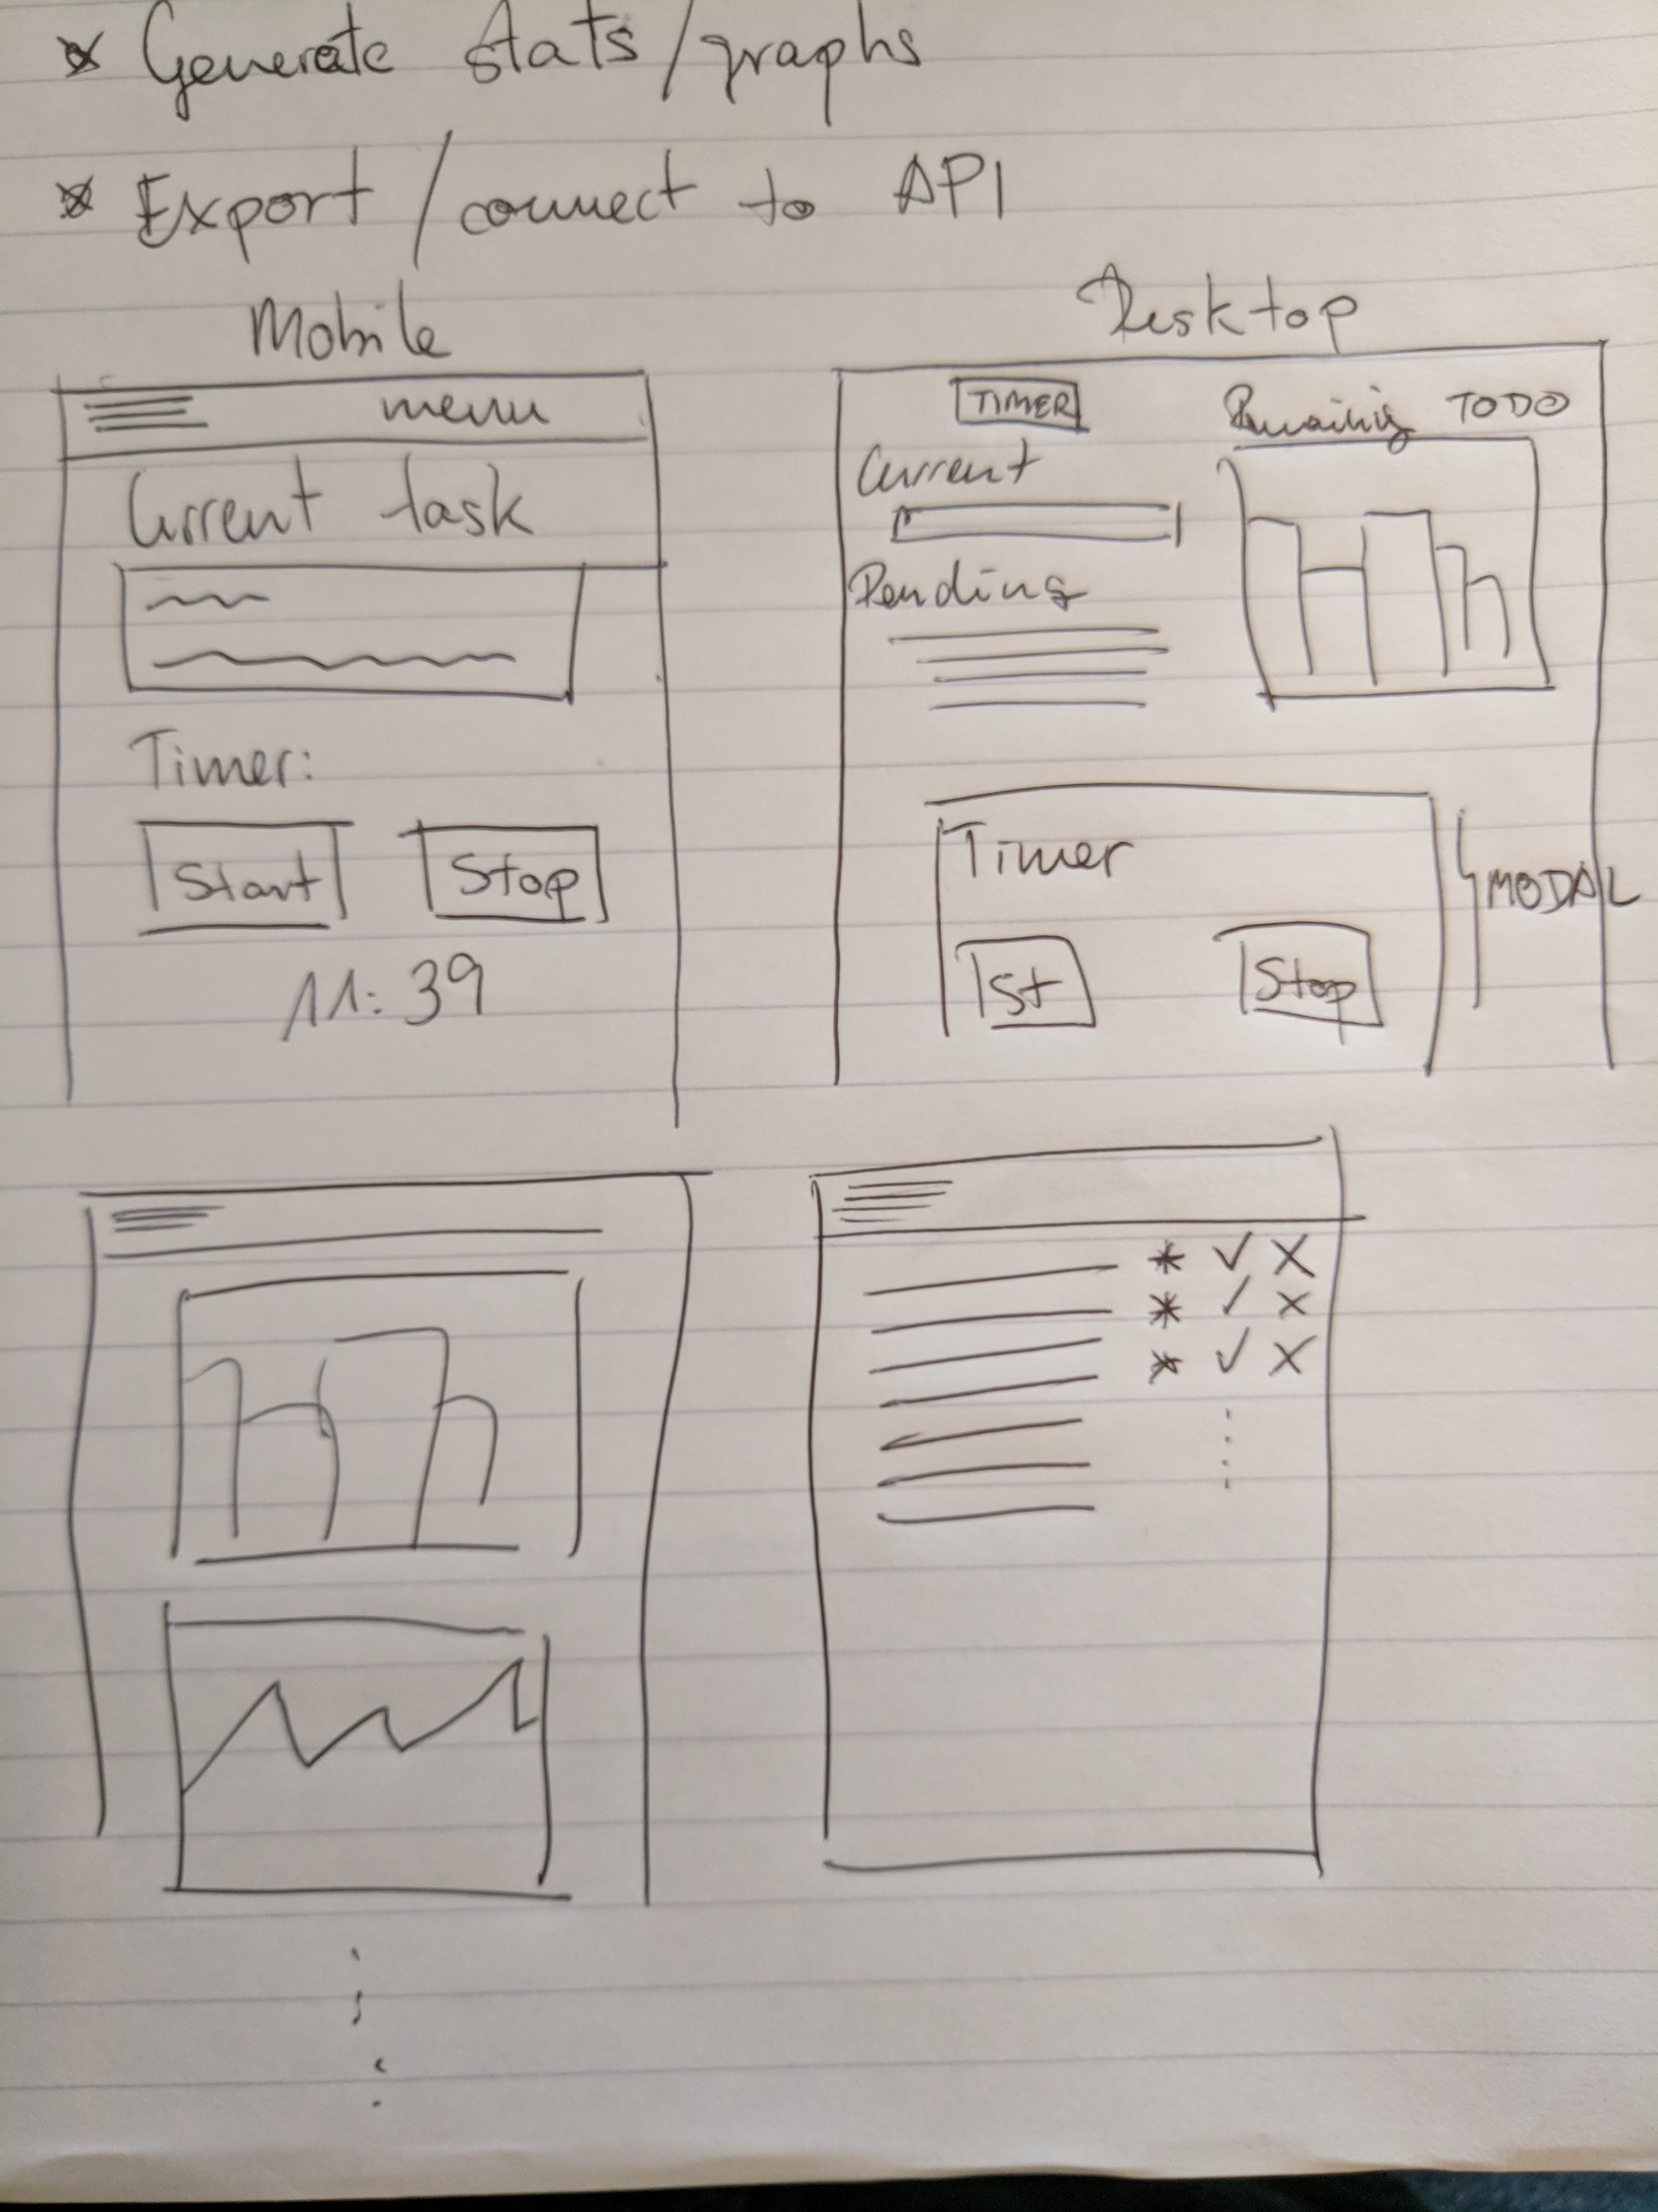 * Generate stats/graphs
* Export/connect to API
Mobile
menu
Current task
Timer:
Start Stop
11:39
Desktop
TIMER Remaining TODO
Current
Pending
Timer
St Stop
MODAL
* ✓ X
* ✓ X
* ✓ X